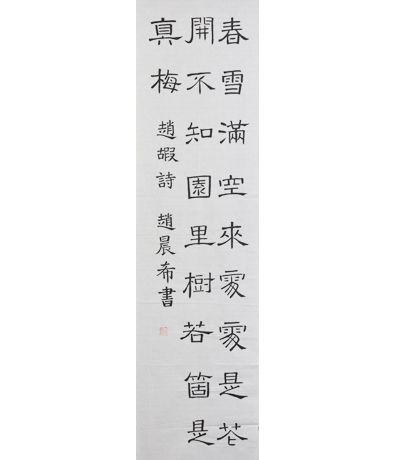 春雪滿空來處處是花
開不知園里樹若箇是
真梅 趙嘏詩 趙晨希書